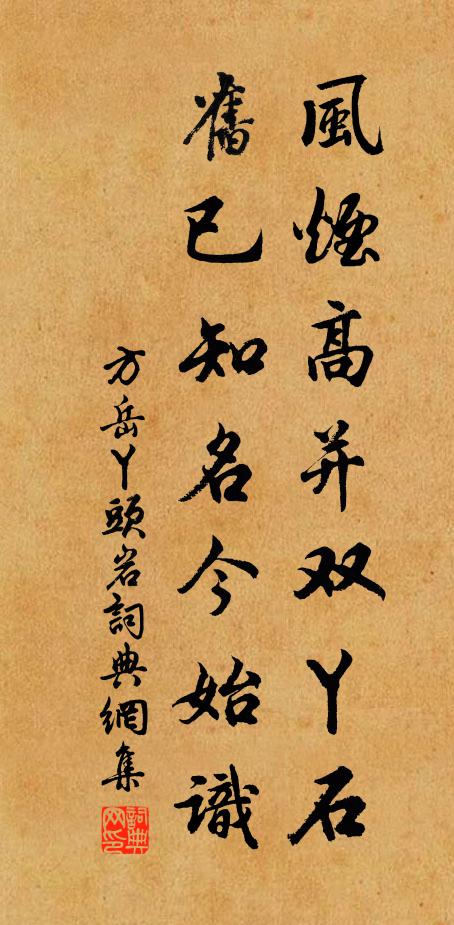 風煙高并双丫石
舊已知名今始識
方岳丫頭岩詞典網集
詞典网印